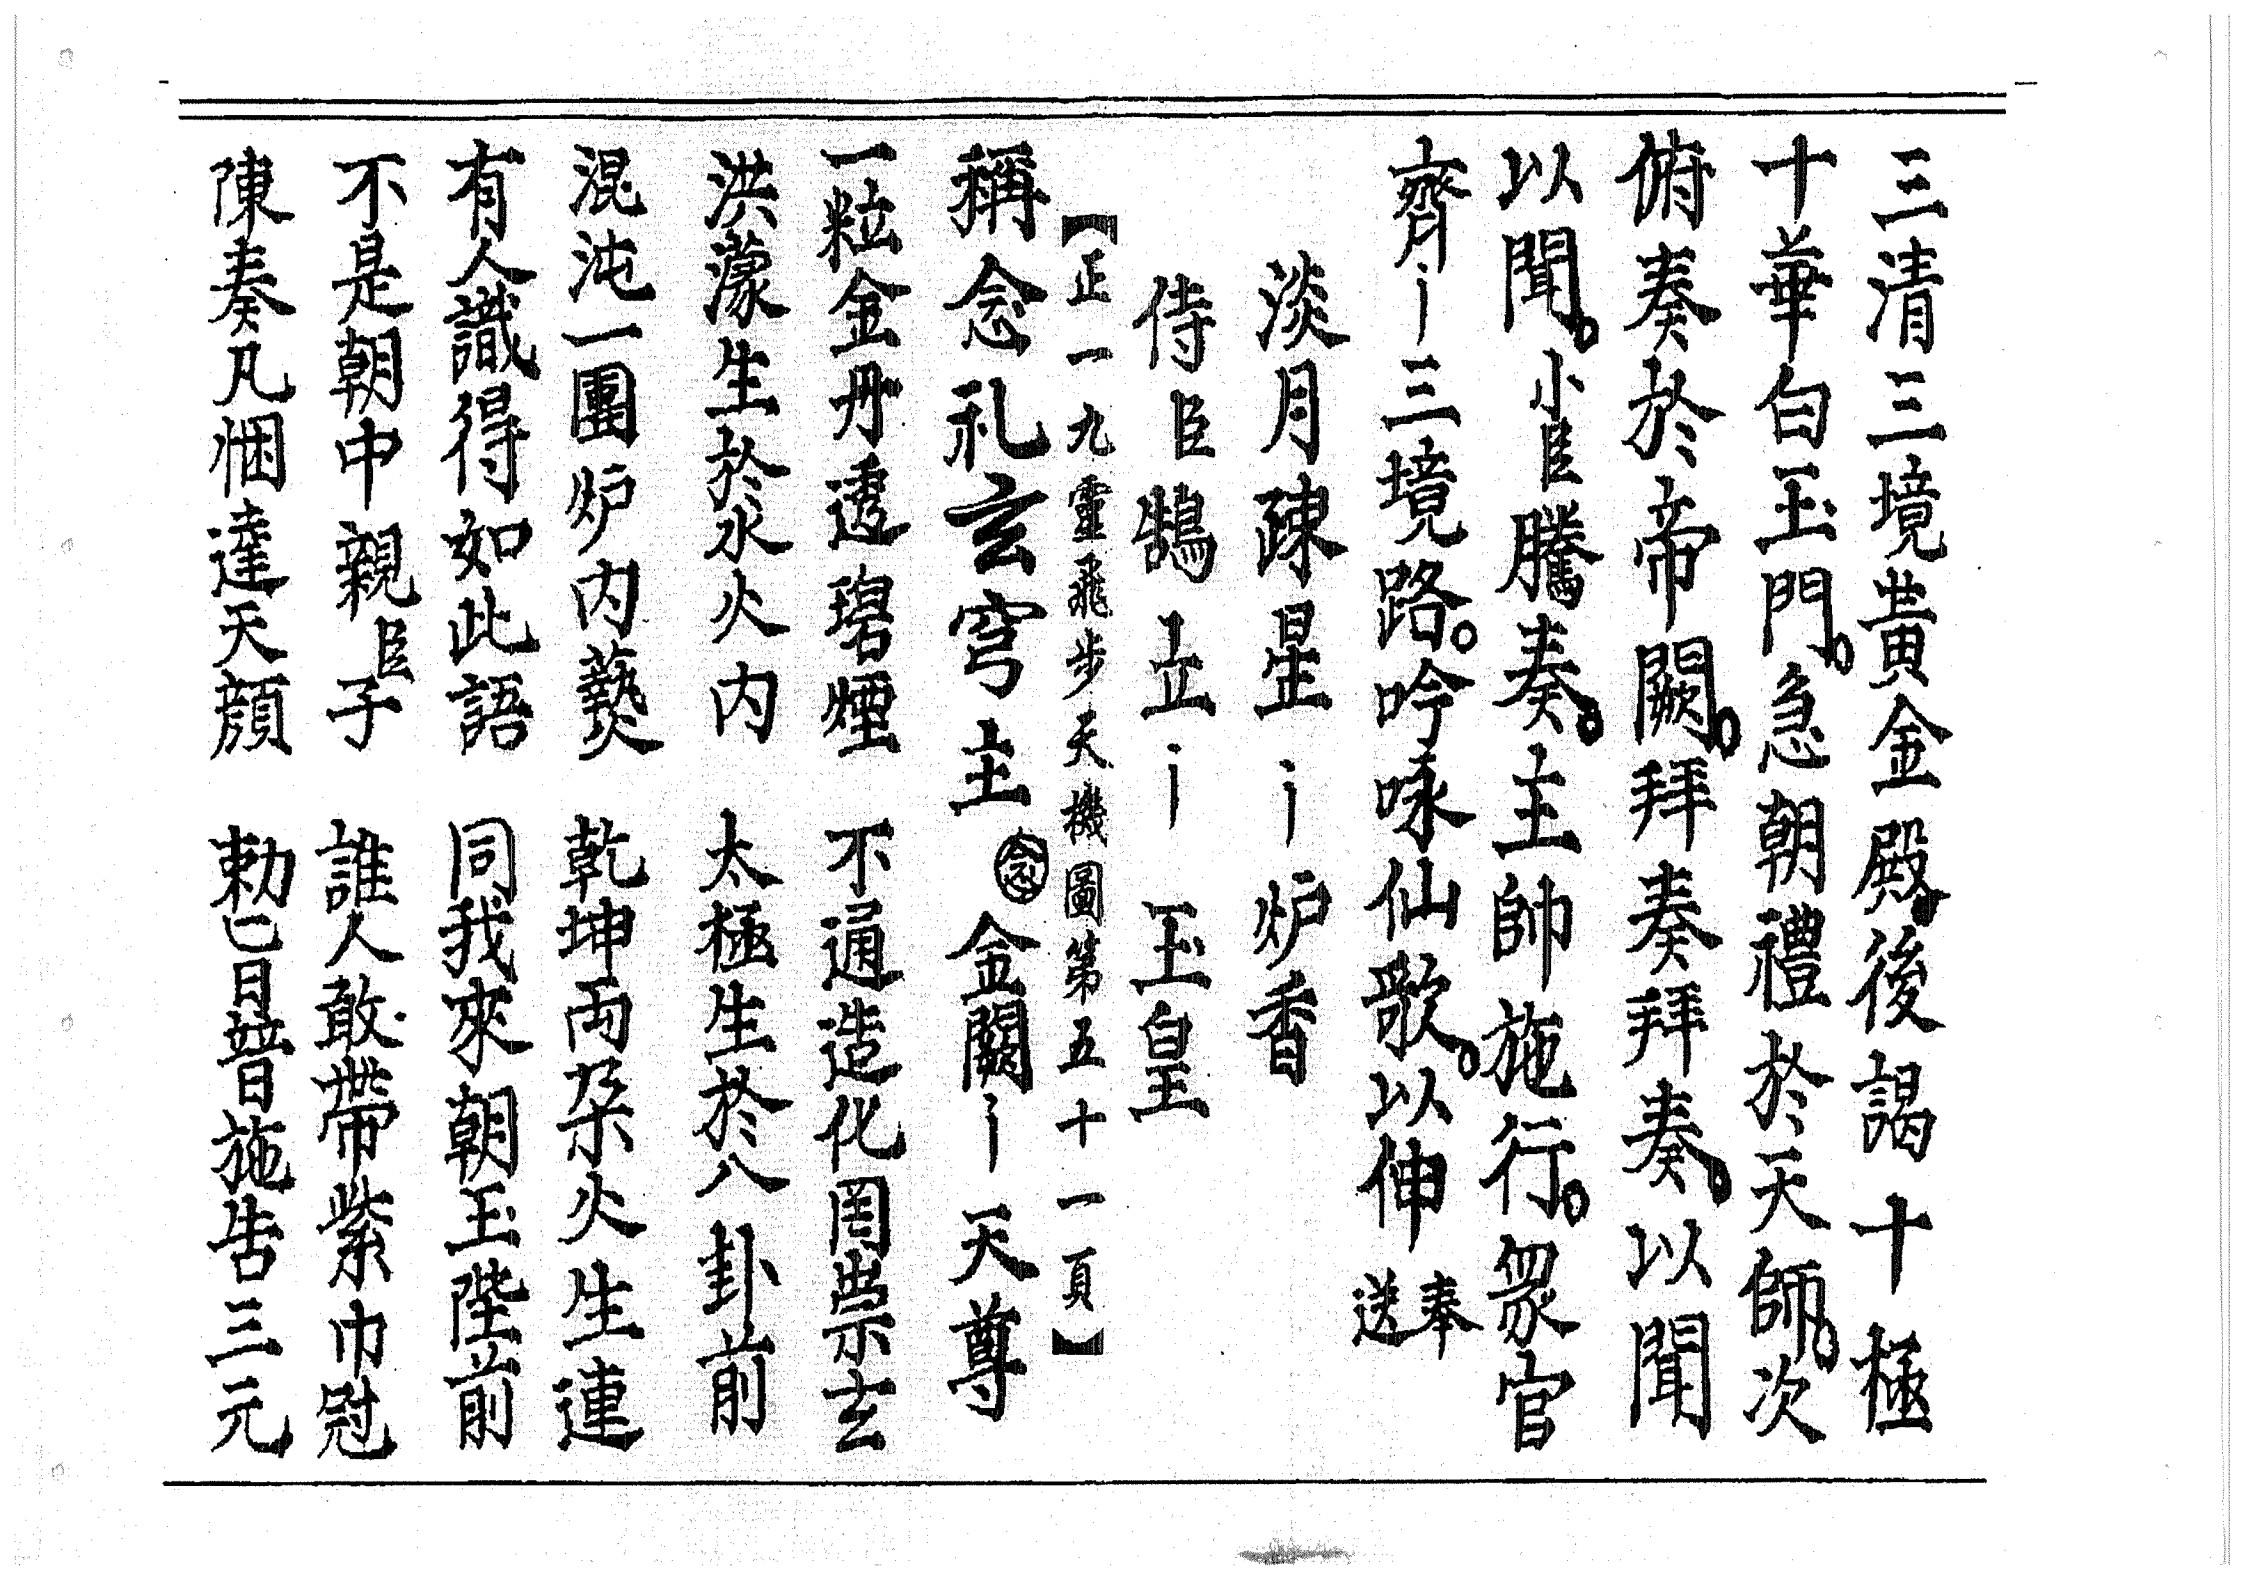 三清三境黃金殿。後謁十極
十華白玉門。急朝禮於天師。次
俯奏於帝闕。拜奏拜奏。以聞
以聞。小臣騰奏。主帥施行。眾官
齊〻三境路。吟咏仙歌。以伸奉送
淡月疎星〻炉香
侍臣鵠立〻玉皇
【正一九靈飛步天機圖第五十一頁】
稱念礼玄穹主 念 金闕〻天尊
一粒金丹透碧煙 不通造化罔崇玄
洪濛生於水火内 太極生於八卦前
混沌一團炉内爇 乾坤両朶火生連
有人識得如此語 同我來朝玉陛前
不是朝中親臣子 誰人敢帶紫巾冠
陳奏凡悃達天顔 勅令日普施告三元